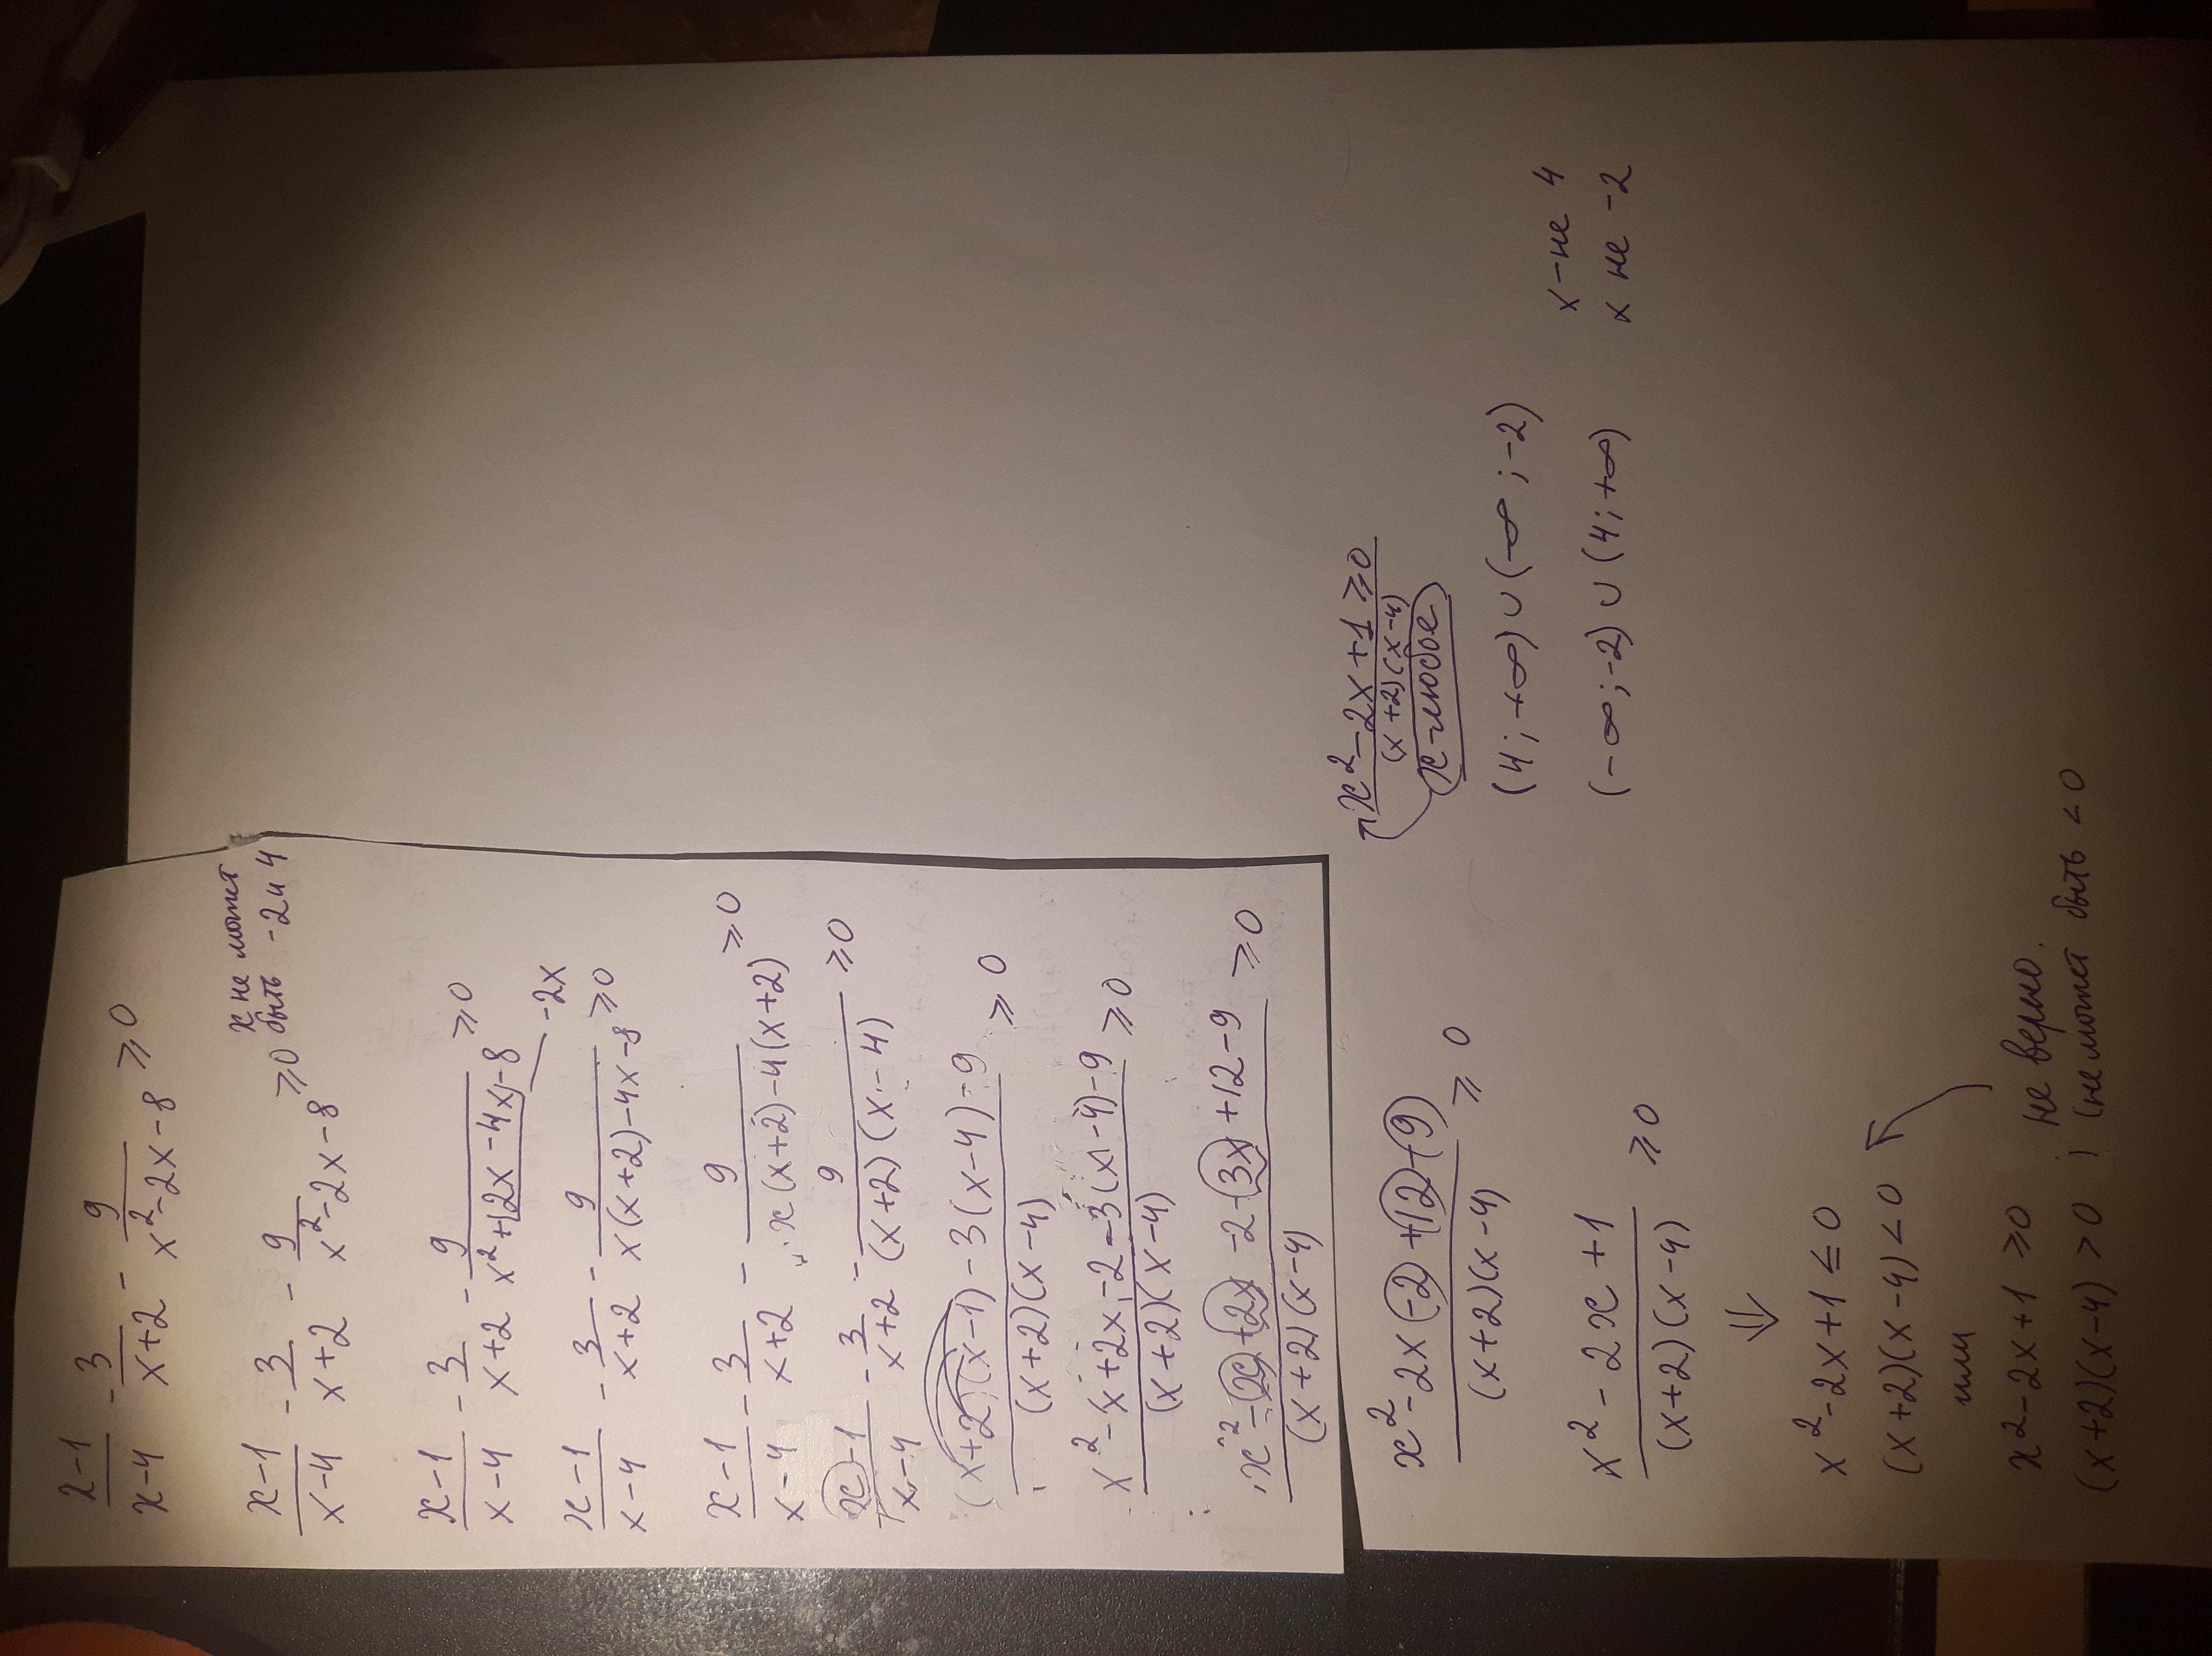 (x-1)/(x-4) - 3/(x+2) - 9/(x²-2x-8) ≥ 0
x не может
быть -2 и 4
(x-1)/(x-4) - 3/(x+2) - 9/(x²-2x-8) ≥ 0
(x-1)/(x-4) - 3/(x+2) - 9/(x²+(2x-4x)-8) ≥ 0
-2x
(x-1)/(x-4) - 3/(x+2) - 9/(x(x+2)-4x-8) ≥ 0
(x-1)/(x-4) - 3/(x+2) - 9/(x(x+2)-4(x+2)) ≥ 0
(x-1)/(x-4) - 3/(x+2) - 9/((x+2)(x-4)) ≥ 0
((x+2)(x-1)-3(x-4)-9)/((x+2)(x-4)) ≥ 0
(x²-x+2x-2-3(x-4)-9)/((x+2)(x-4)) ≥ 0
(x²-x+2x-2-3x+12-9)/((x+2)(x-4)) ≥ 0
(x²-2x-2+12-9)/((x+2)(x-4)) ≥ 0
(x²-2x+1)/((x+2)(x-4)) ≥ 0
⇓
x²-2x+1 ≤ 0
(x+2)(x-4) < 0
или
x²-2x+1 ≥ 0 не верно.
(x+2)(x-4) > 0 ) (не может быть < 0
x²-2x+1 ≥ 0
(x+2)(x-4)
x-любое
(4; +∞) ∪ (-∞; -2)
(-∞; -2) ∪ (4; +∞)
x-не 4
x не -2